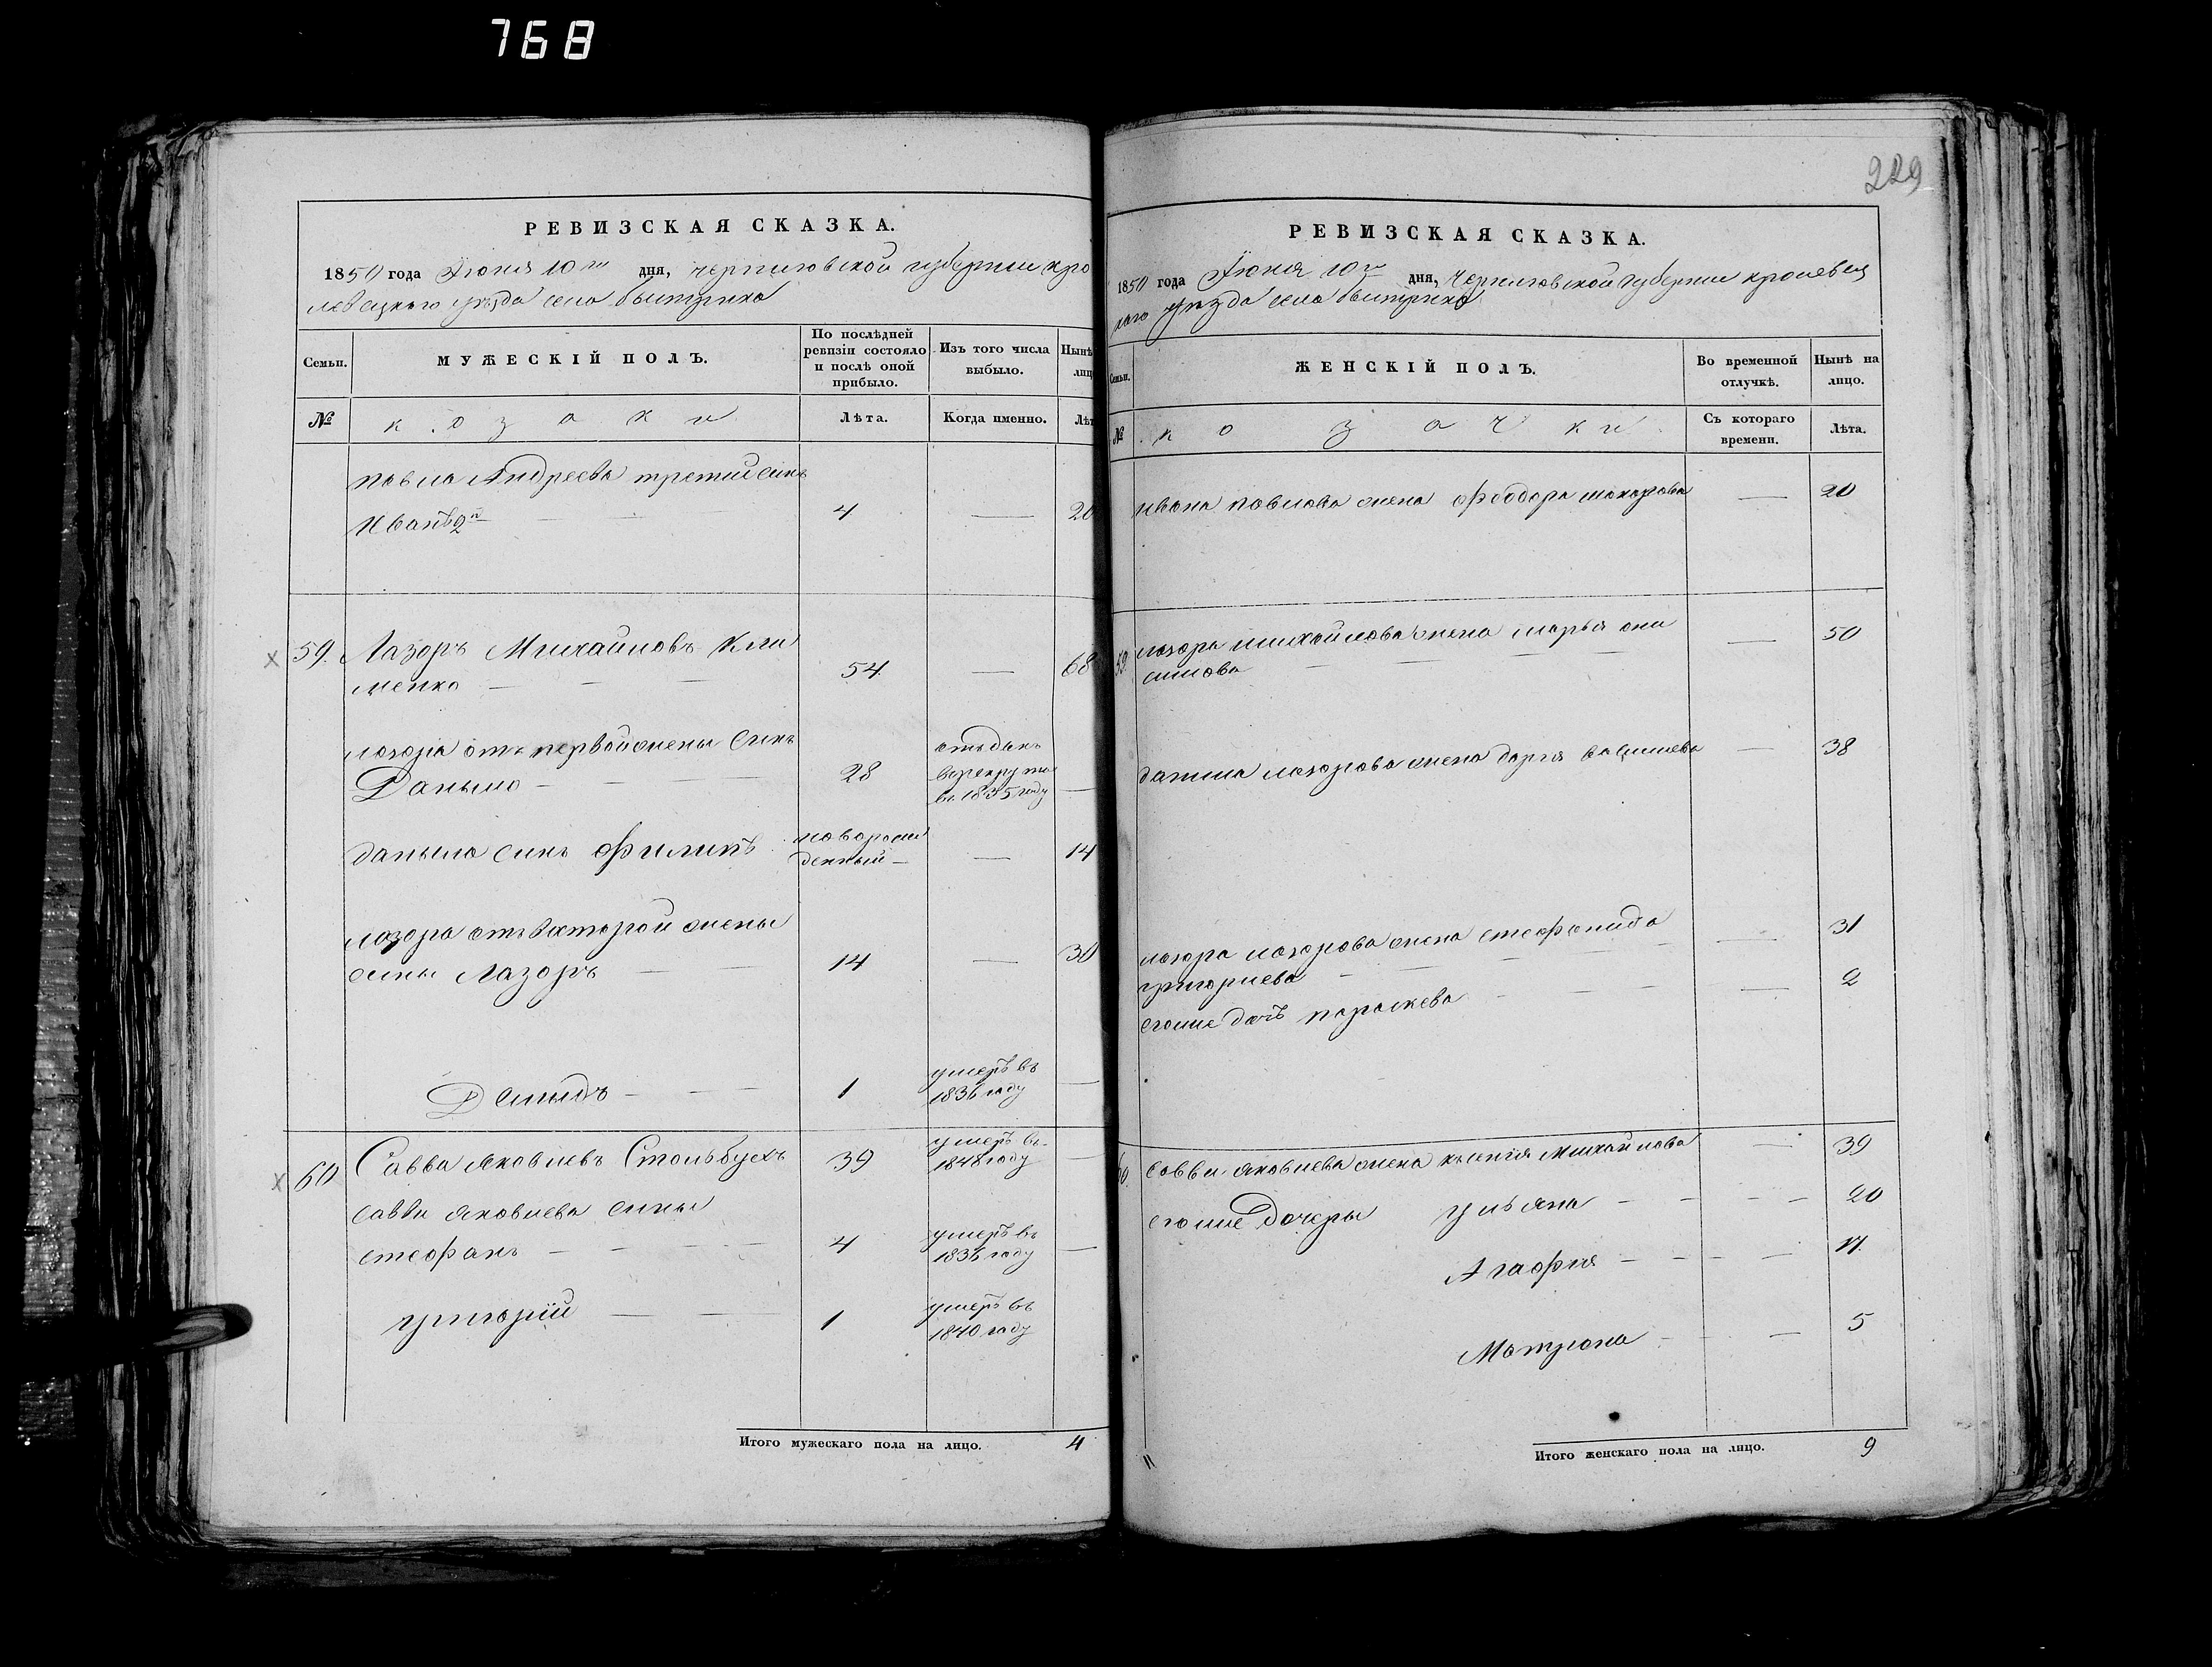 768
РЕВИЗСКАЯ СКАЗКА.
1850 года Іюня 10го дня, черниговской губернии кро
левецкаго уезда села быстрика
Семьи. МУЖЕСКІЙ ПОЛЪ. По послѣдней ревизіи состояло и послѣ оной прибыло. Изъ того числа выбыло. Нынѣ лиц
№ козаки Лѣта. Когда именно. Лѣт
павла Андреева третий синъ
Иванъ 2й 4 — 20
59. Лазоръ Михайловъ Кли
менко 54. — 68
лазора отъ первой жены синъ
Данило 28 отъдань в рекруты въ 1835 году —
данила синъ Филипъ новорожденный — — 14
лазора отъ второй жены
сины Лазоръ 14 — 30
Демидъ 1 умеръ въ 1836 году —
60 Савва Яковлевъ Стольбухъ 39 умеръ въ 1848 году —
савви яковлева сины
стефанъ 4 умеръ въ 1836 году —
григорій 1 умеръ въ 1840 году
Итого мужескаго пола на лицо. 4
229
РЕВИЗСКАЯ СКАЗКА.
1850 года Іюня 10го дня, Черниговской губернии кролевец
каго уезда села быстрика
Семьи. ЖЕНСКІЙ ПОЛЪ. Во временной отлучкѣ. Нынѣ на лицо.
№ козачки Съ котораго времени. Лѣта.
ивана павлова жена феодора макарова — 20
59. лазора михайлова жена марья они
симова — 50
данила лазорова жена дарія — 38
лазора лазорова жена стефанида
григориева — 31
егоже дочъ параскева — 2
60. савви яковлева жена ксенія Михайлова — 39
егоже дочеры ульяна 20
Агафия
Матрона 5
Итого женскаго пола на лицо. 9